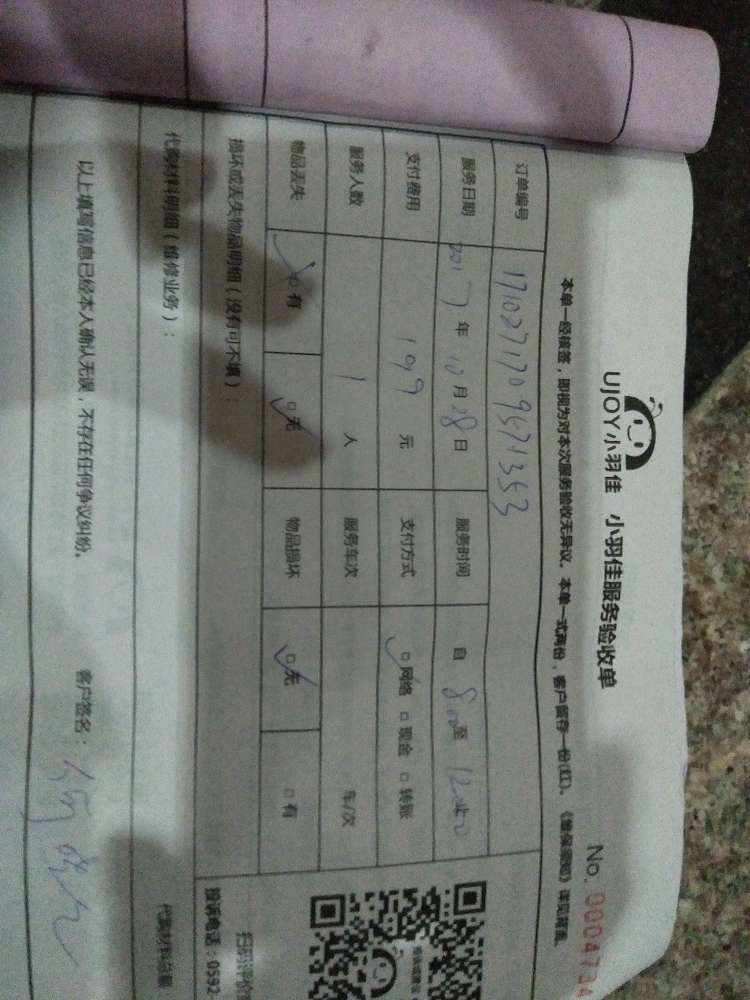 UJOY小羽佳 小羽佳服务验收单
No. 0004734
本单一经核签，即视为对本次服务验收无异议。本单一式两份，客户留存一份(红)。《维保须知》详见背面。
订单编号 17102717095721353
服务日期 2017年10月28日 服务时间 自8:00至12:00
支付费用 199元 支付方式 □网络 □现金 □转账
服务人数 1人 服务车次 车/次
物品丢失 □有 □无 物品损坏 □无 □有
损坏或丢失物品明细（没有可不填）：
代购材料明细（维修业务）：
代购材料总量
以上填写信息已经本人确认无误，不存在任何争议纠纷。 客户签名：
投诉电话：0592